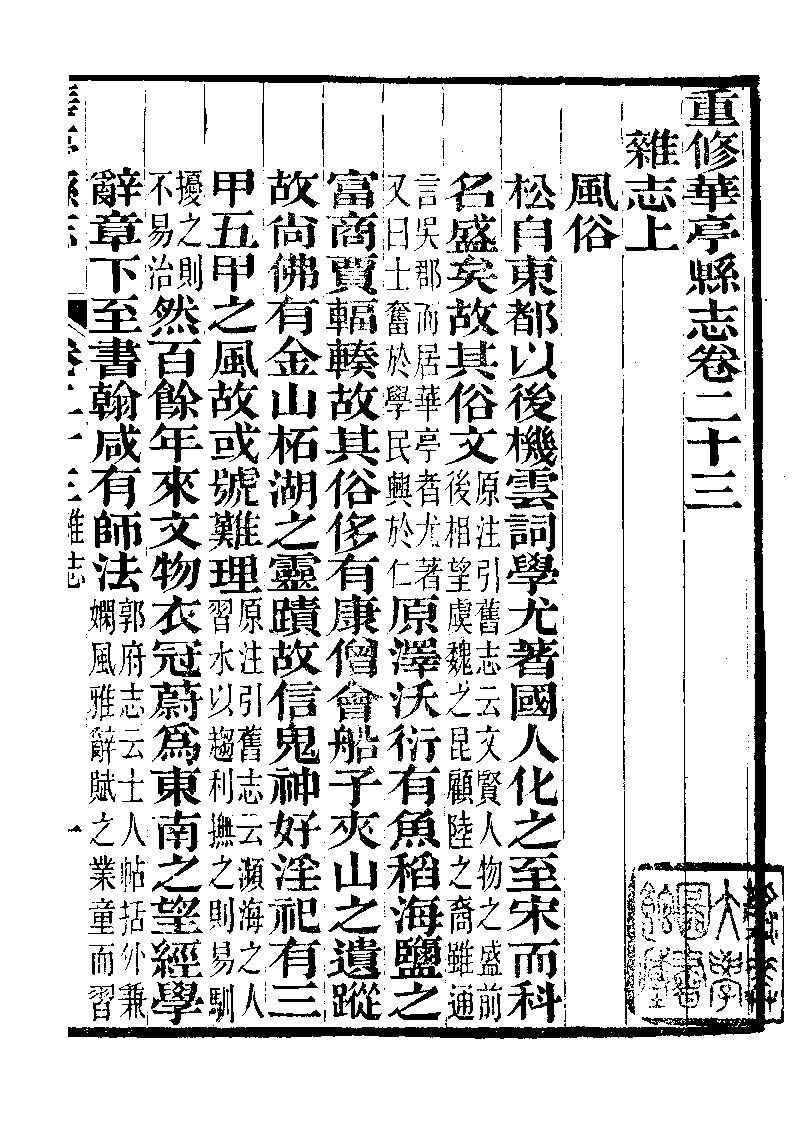 重修華亭縣志卷二十三
雜志上
風俗
松自東都以後機雲詞學尤著國人化之至宋而科
名盛矣故其俗文原注引舊志云文賢人物之盛前
後相望虞魏之昆顧陸之裔雖通
言吳郡而居華亭者尤著
又曰士奮於學民興於仁原澤沃衍有魚稻海鹽之
富商賈輻輳故其俗侈有康僧會船子夾山之遺蹤
故尚佛有金山柘湖之靈蹟故信鬼神好淫祀有三
甲五甲之風故或號難理原注引舊志云瀕海之人
習水以趨利撫之則易馴
擾之則
不易治然百餘年來文物衣冠蔚爲東南之望經學
辭章下至書翰咸有師法郭府志云士人帖括外兼
嫻風雅辭賦之業童而習
卷二十三
雜志
一